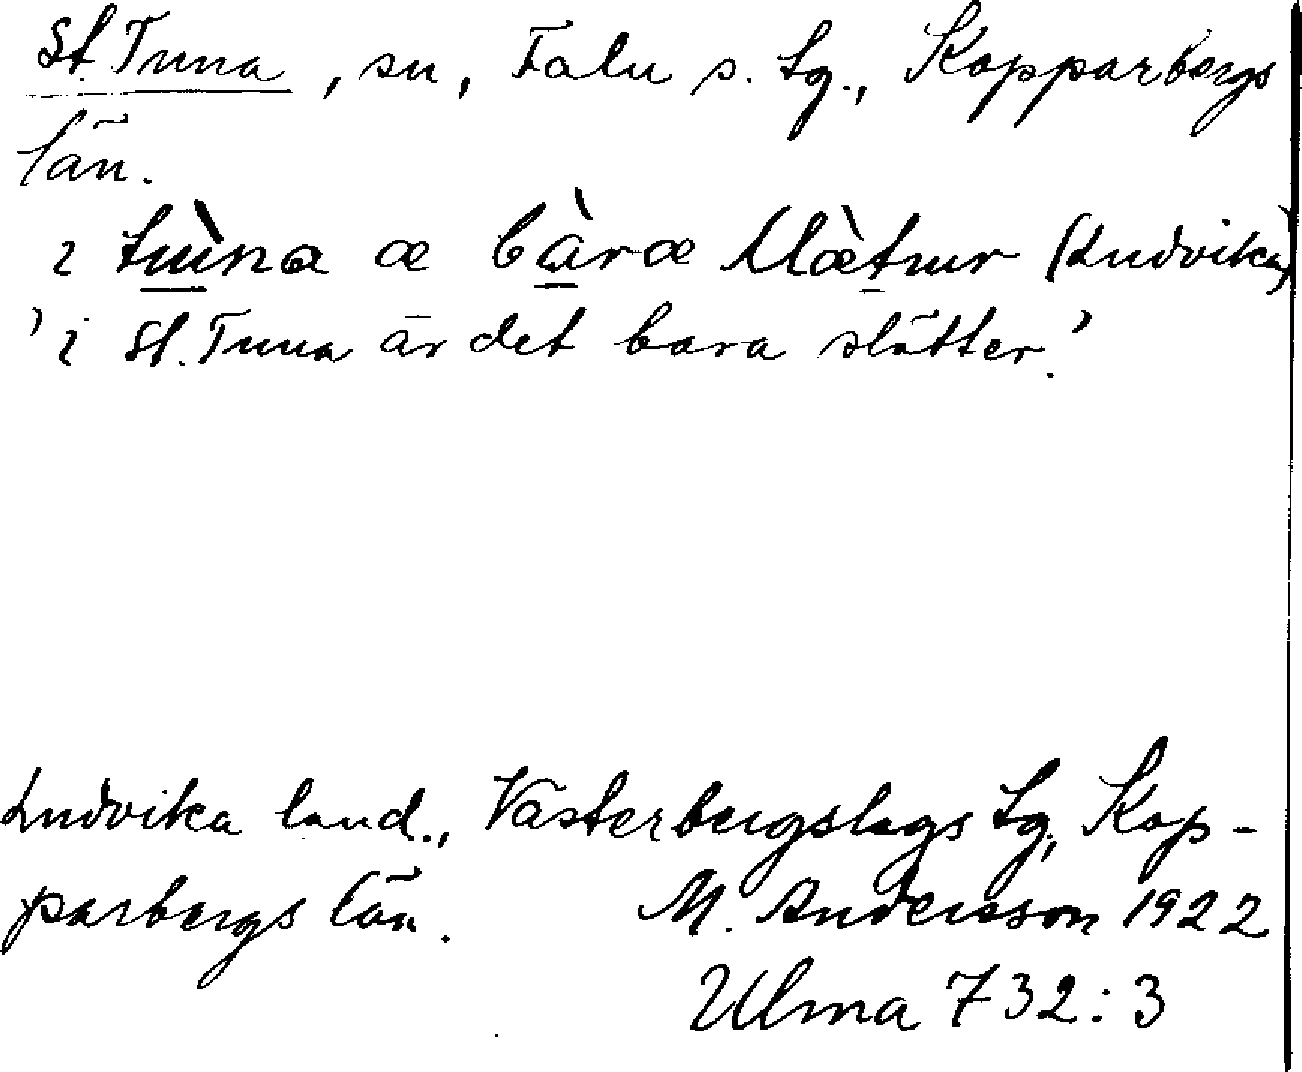 St. Tuna, sn, Falu s. tg., Kopparbergs
län.
(Ludvika)
'i St. Tuna är det bara slätter.'
Ludvika land., Västerbergslags tg, Kop-
parbergs län. M. Andersson 1922
Ulma 732:3